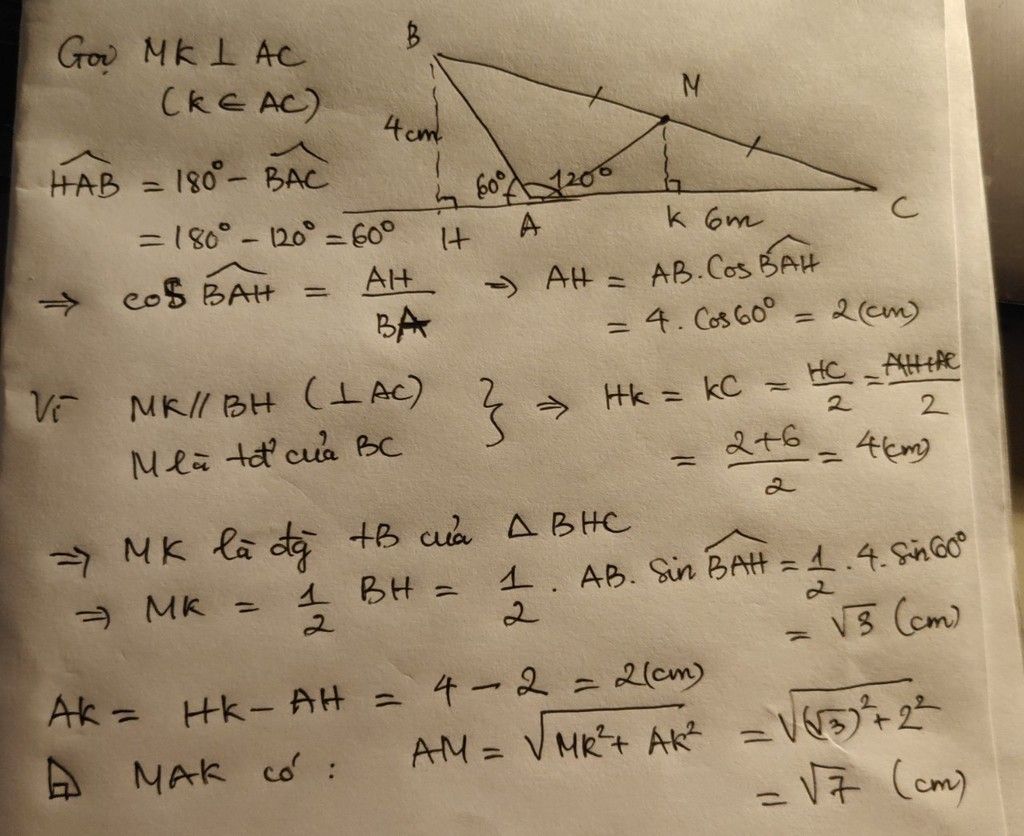 Gọi MK ⊥ AC
(K ∈ AC)
B
M
4cm
60°
120°
H
A
K
6m
C
\widehat{HAB} = 180° - \widehat{BAC}
= 180° - 120° = 60°
⇒ cos \widehat{BAH} = \frac{AH}{BA} ⇒ AH = AB.Cos \widehat{BAH}
= 4.Cos60° = 2(cm)
Vì MK // BH (⊥ AC)
M là tđ của BC
} ⇒ HK = KC = \frac{HC}{2} = \frac{AH+AC}{2}
= \frac{2+6}{2} = 4(cm)
⇒ MK là đg TB của Δ BHC
⇒ MK = \frac{1}{2} BH = \frac{1}{2} . AB. Sin \widehat{BAH} = \frac{1}{2} . 4. Sin60°
= √3 (cm)
AK = HK - AH = 4 - 2 = 2(cm)
MAK có : AM = \sqrt{MK² + AK²} = \sqrt{(√3)² + 2²}
= √7 (cm)